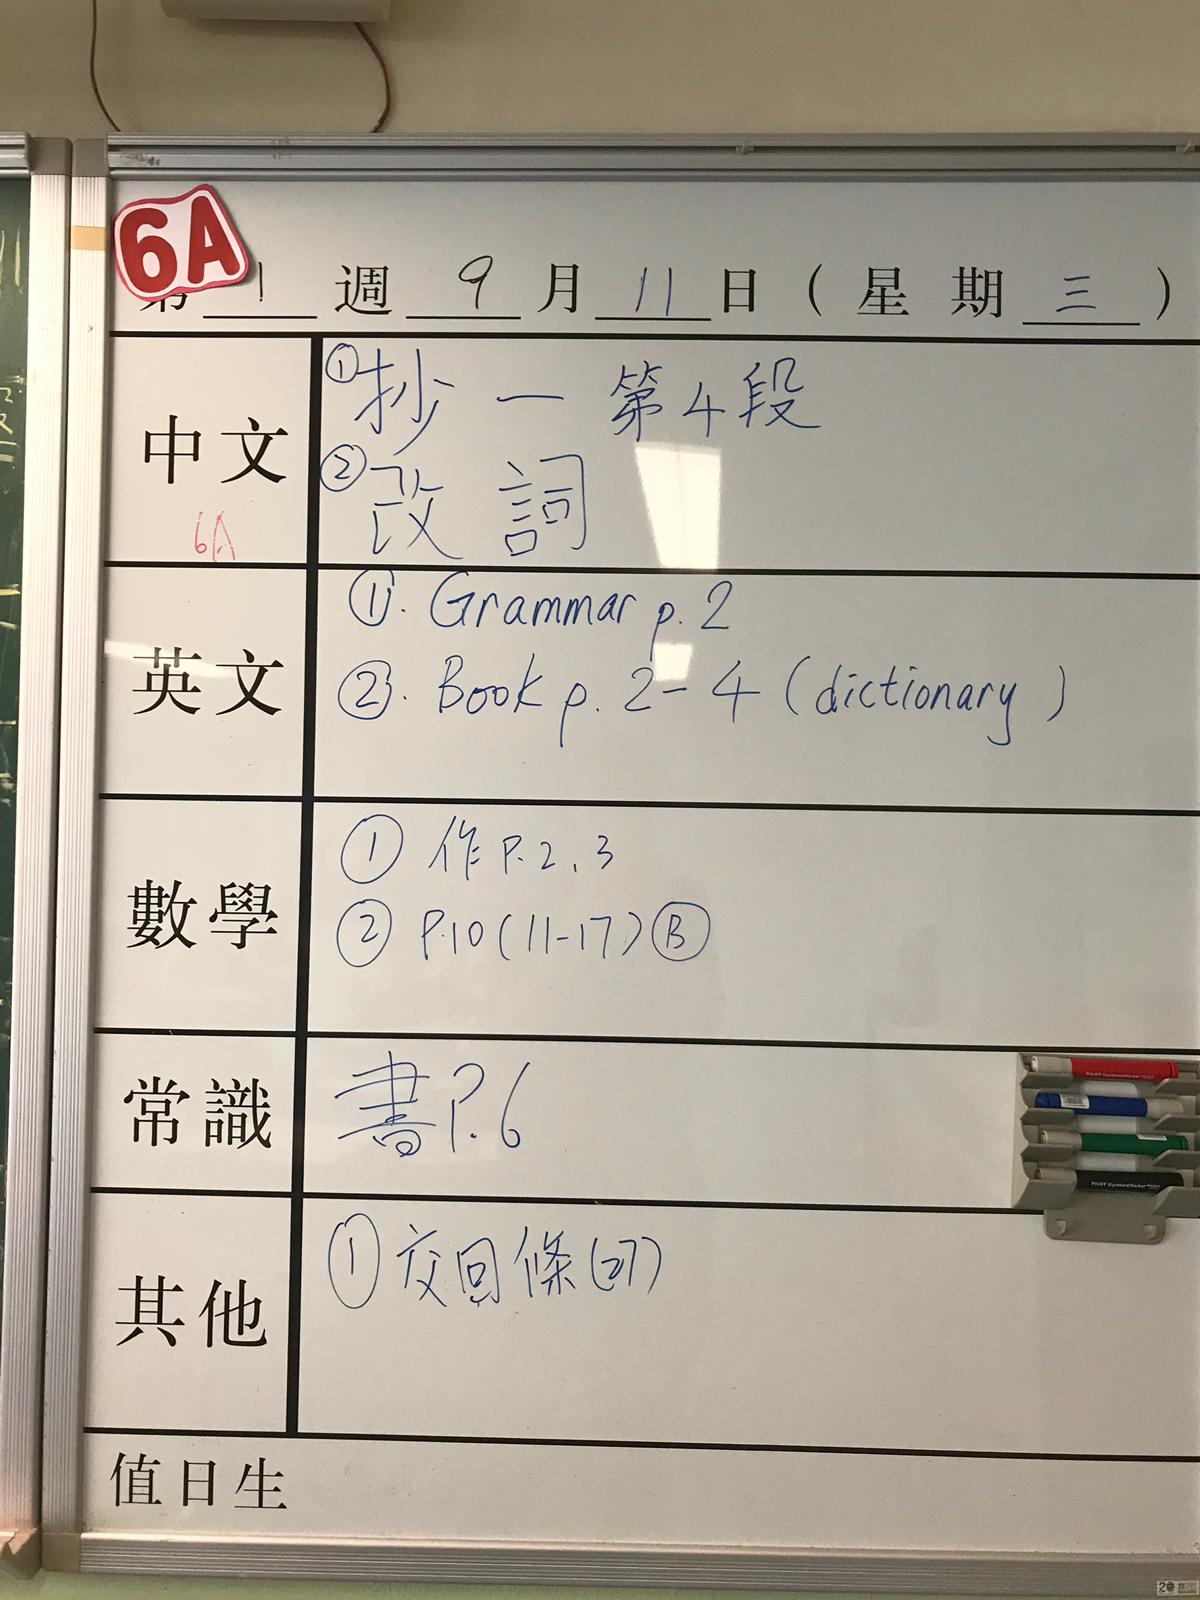 6A
第 1 週 9 月 11 日 ( 星 期 三 )
中文
6A
① 抄 一 第 4 段
② 改 詞
英文
①. Grammar p. 2
②. Book p. 2-4 (dictionary)
數學
① 作 P.2, 3
② P.10 (11-17) Ⓑ
常識
書 P.6
其他
① 交回條 (27)
值日生